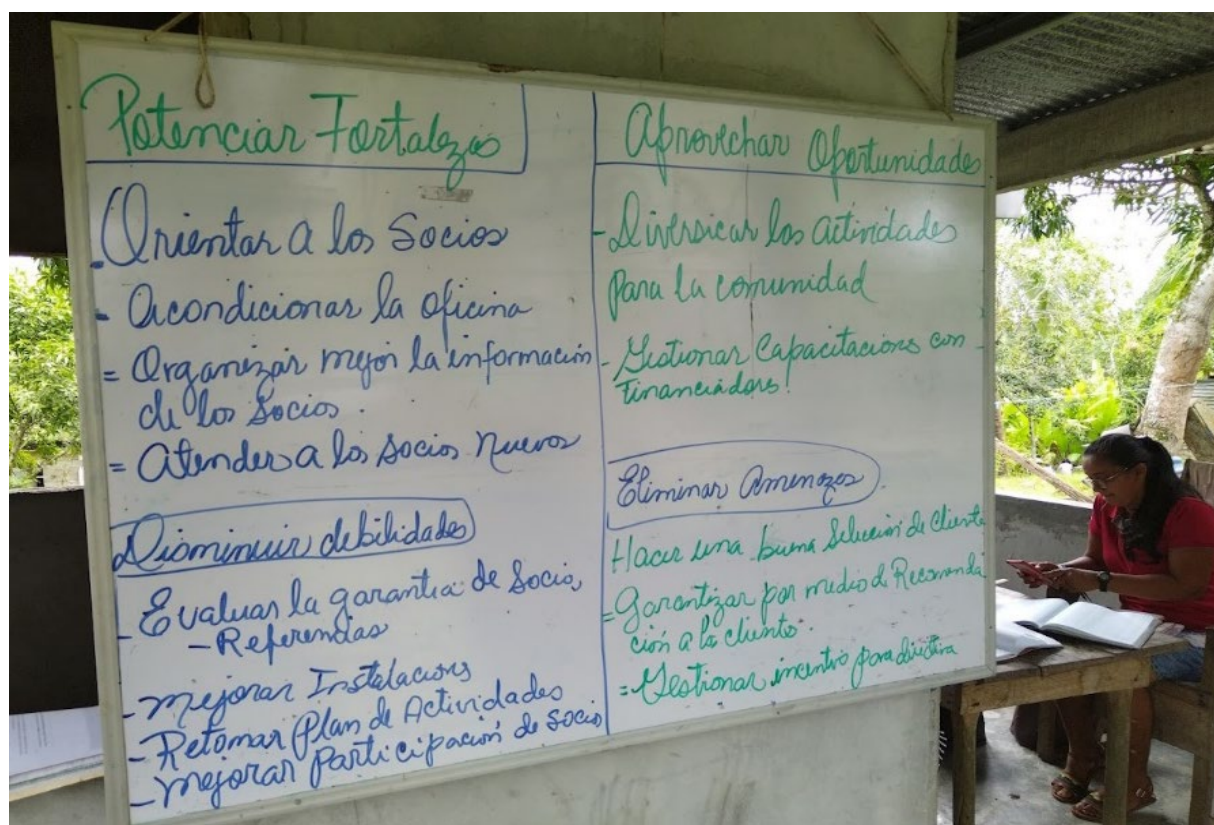 Potenciar Fortalezas
- Orientar a los Socios
- Acondicionar la oficina
= Organizar mejor la información
de los Socios.
= Atender a los socios nuevos
Disminuir debilidades
- Evaluar la garantia de Socio,
- Referencias
- mejorar Instalacions
- Retomar Plan de Actividades
- mejorar Participación de socio
Aprovechar Oportunidades
- Diversicar las actividades
para la comunidad
- Gestionar Capacitacions con
financiadors.
Eliminar Amenazas
Hacer una buena Selección de Cliente
= Garantizar por medio de Recomenda
ción a la cliente.
= Gestionar incentivo para directiva